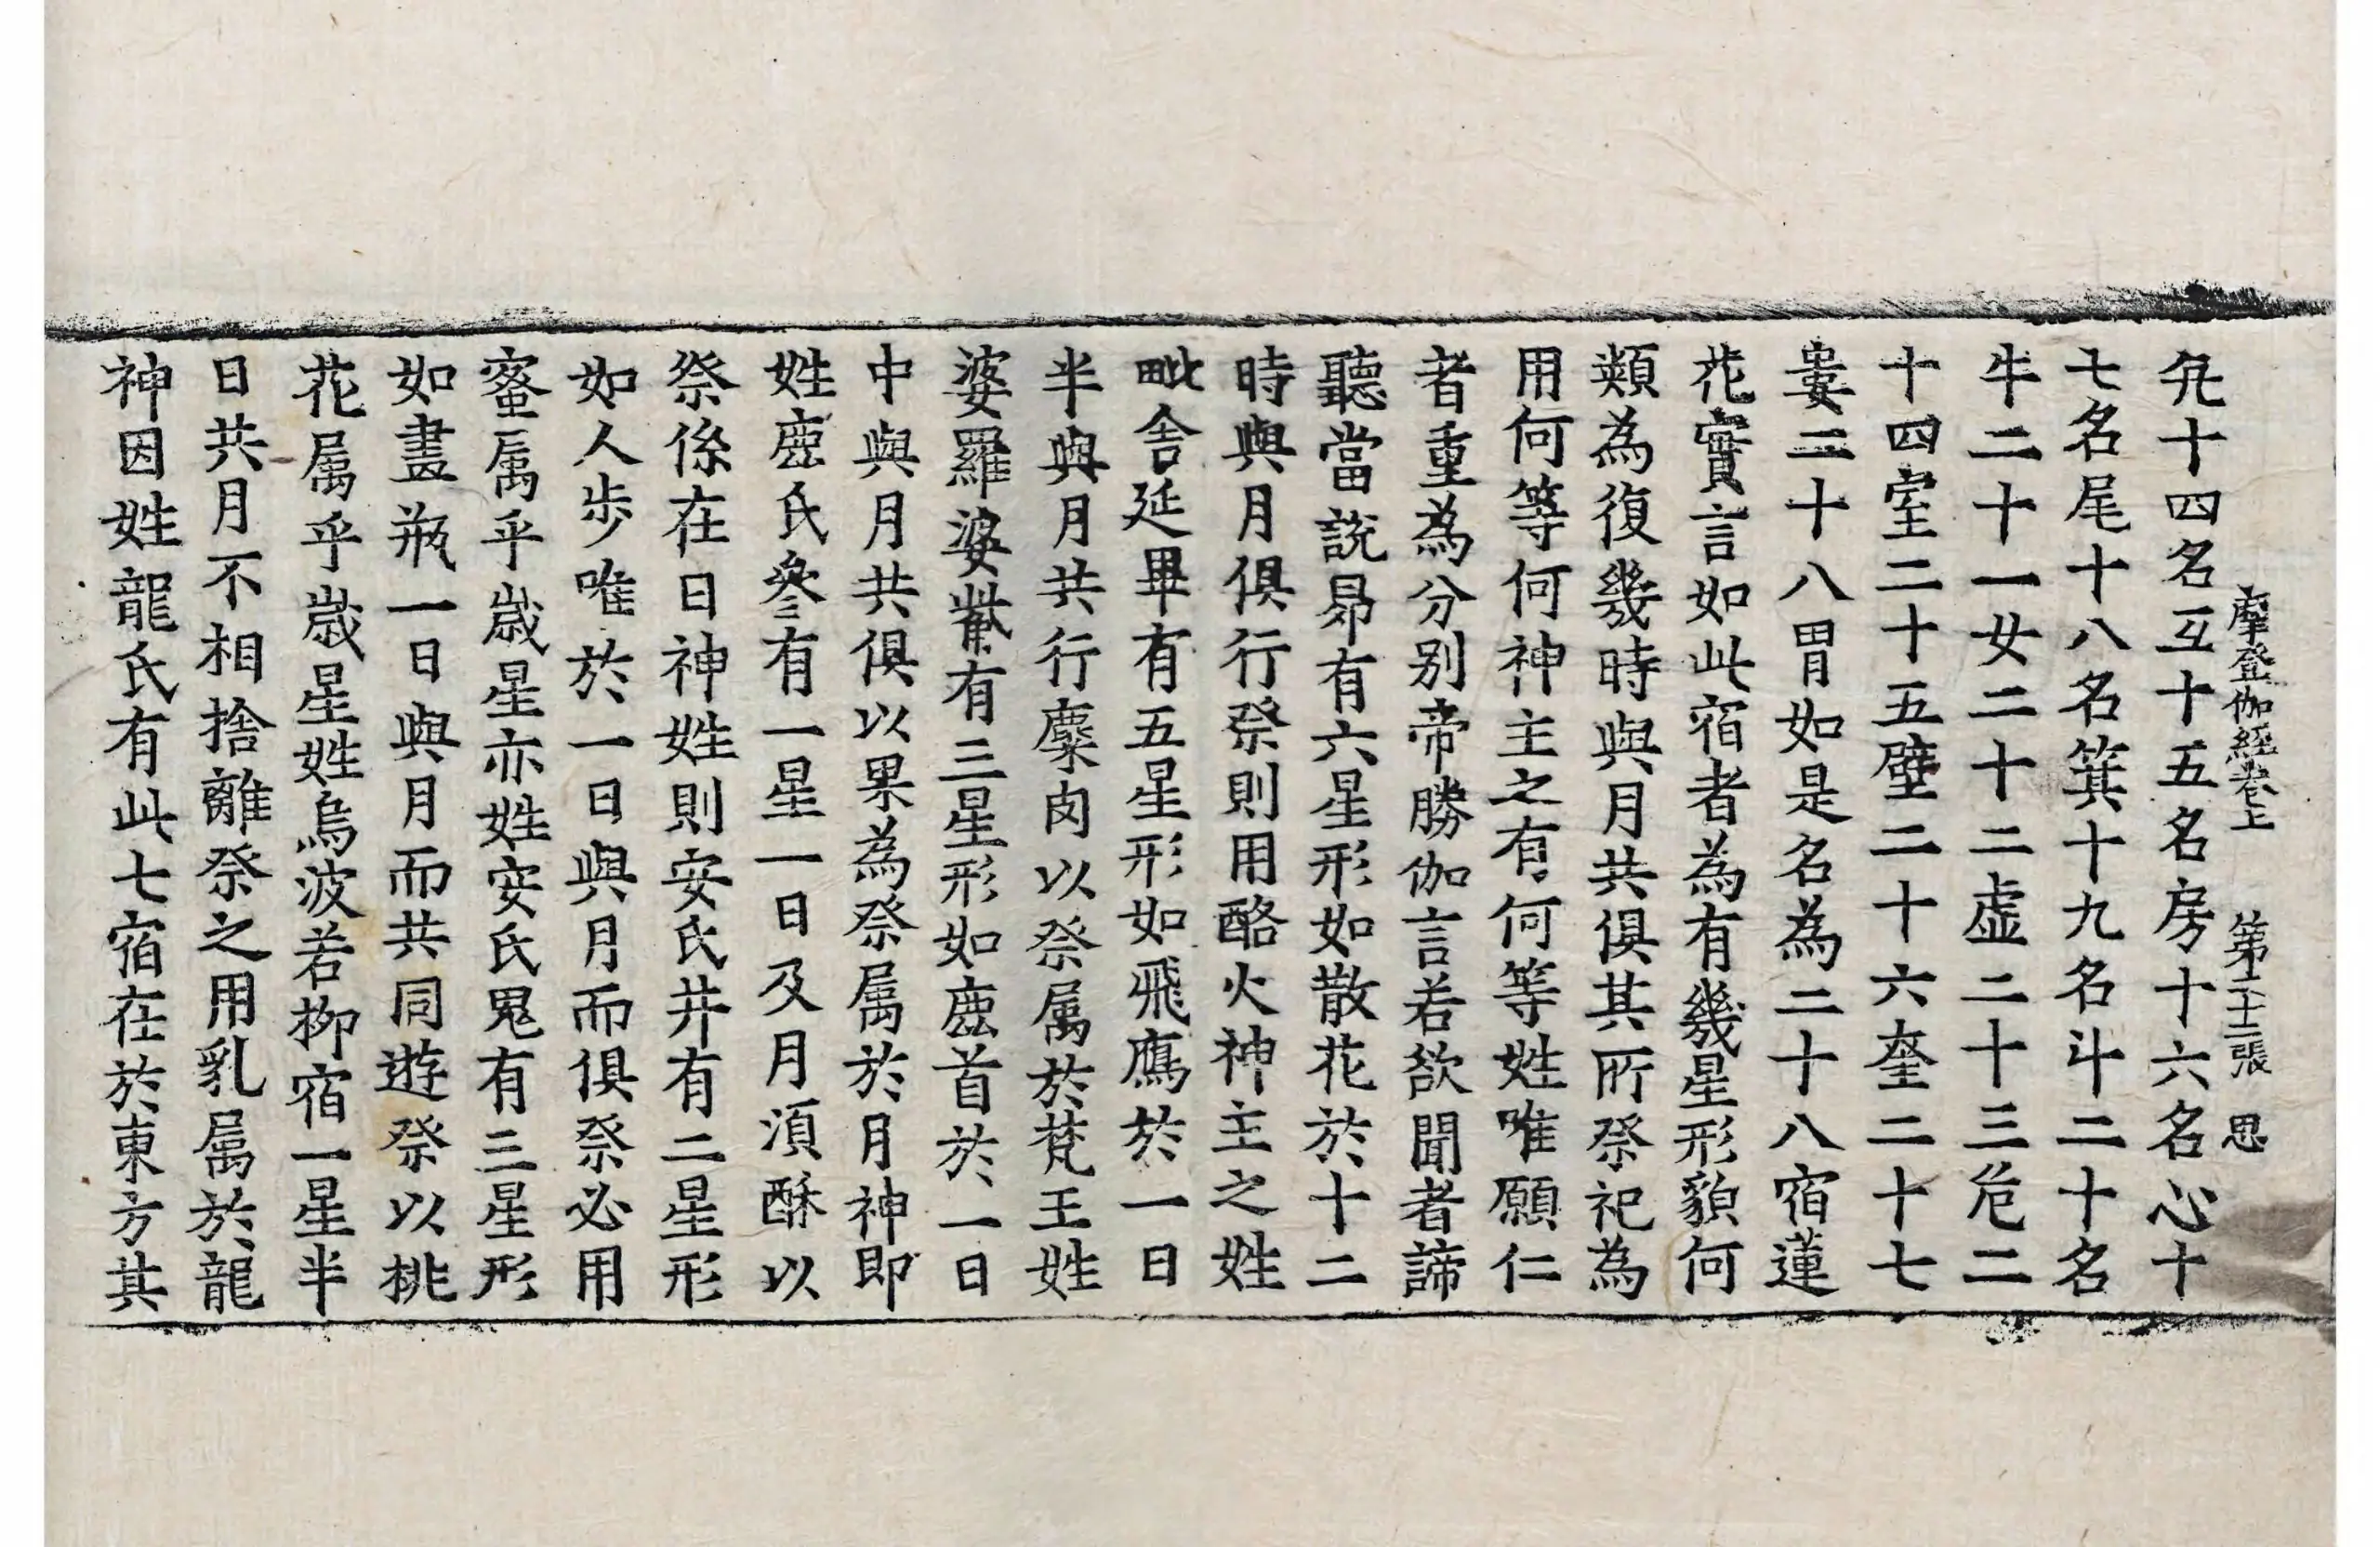 摩登伽經卷上　第二十二張　思
亢十四名互十五名房十六名心十
七名尾十八名箕十九名斗二十名
牛二十一女二十二虛二十三危二
十四室二十五壁二十六奎二十七
婁二十八胃如是名為二十八宿蓮
花實言如此宿者為有幾星形貌何
類為復幾時與月共俱其所祭祀為
用何等何神主之有何等姓唯願仁
者重為分別帝勝伽言若欲聞者諦
聽當說昴有六星形如散花於十二
時與月俱行祭則用酪火神主之姓
毗舍延畢有五星形如飛鴈於一日
半與月共行麋肉以祭属於梵王姓
婆羅婆觜有三星形如鹿首於一日
中與月共俱以果為祭属於月神即
姓鹿氏參有一星一日及月湏酥以
祭係在日神姓則安氏井有二星形
如人步唯於一日與月而俱祭必用
蜜属乎歲星亦姓安氏鬼有三星形
如畫瓶一日與月而共同遊祭以桃
花属乎歲星姓烏波若柳宿一星半
日共月不相捨離祭之用乳属於龍
神因姓龍氏有此七宿在於東方其